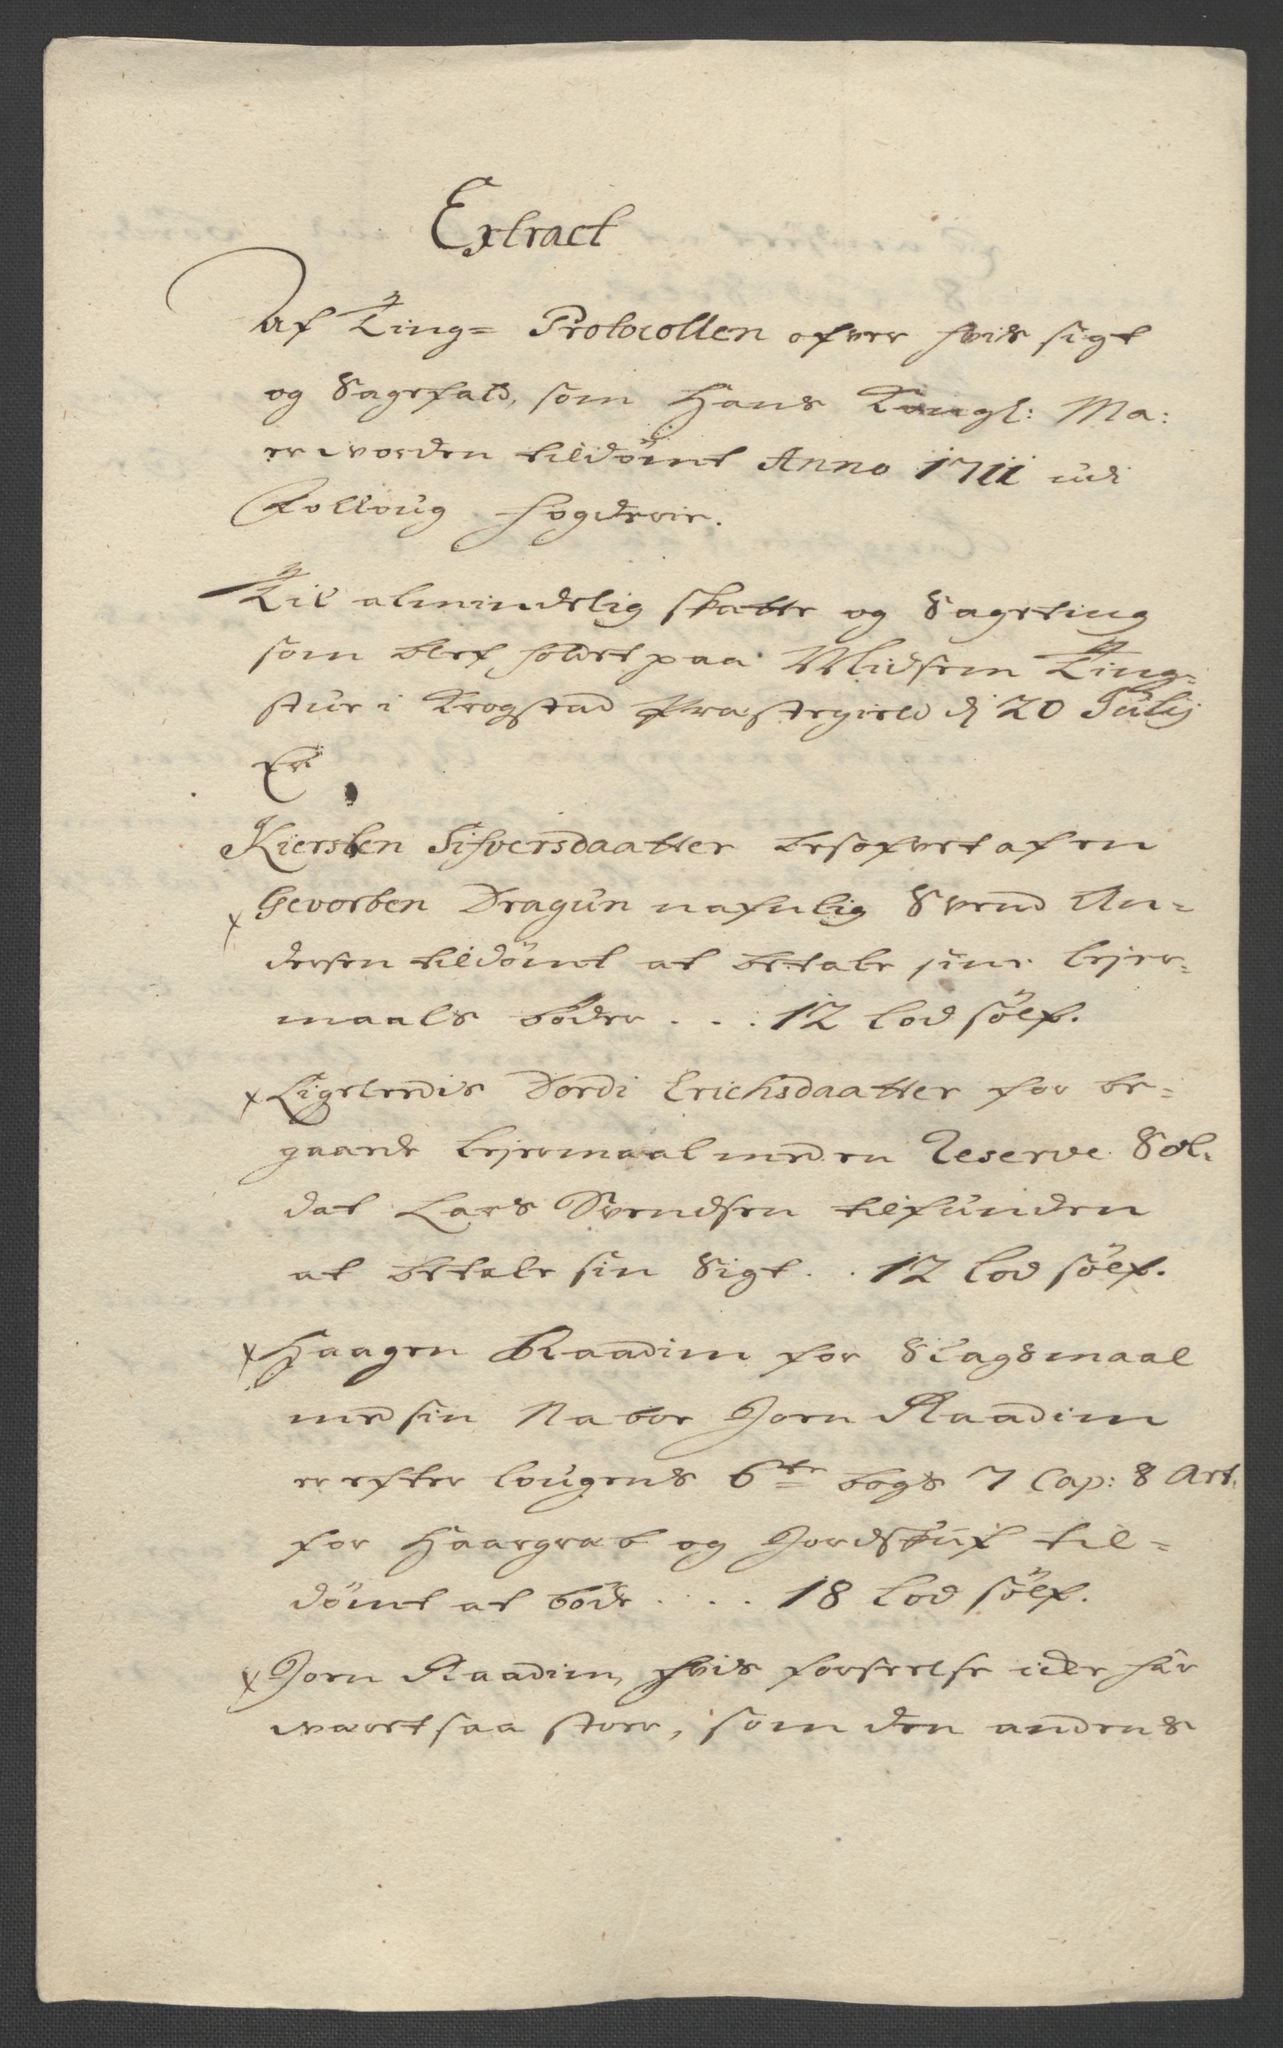 Extract
Af Ting= Protocollen ofver hvis sigt
og Sagefald, som Hans Kongl: Ma:
er worden tildömt Anno 1711 udi
Folloug fogderie.
Til almindelig skatte og Sageting
som blef holdet paa Midsem Ting=
stue i Krogstad Præstegield d 20 Julij
Er
Kiersten Sifversdaatter besofvet af en
x Gevorben Dragun nafnlig Svend An=
dersen tildömt at betale sine leyer=
maals böder . . . 12 lod sölf.
x Ligeleedis Dordi Erichsdaatter for be=
gaaede leyermaal med en Reserve Sol=
dat Lars Svendsen tilfunden
at betale sin Sigt . . 12 lod sölf.
x Haagen Raadim for Slagsmaal
med sin Naboe Jorn Raadim
er efter lougens 6te bogs 7 Cap: 8 Art.
for Haargrab og Jordskuf til=
dömt at böde . . . . 18 lod sölf.
x Jorn Raadim, hvis forseelse icke har
waeret saa stoer, som den andens